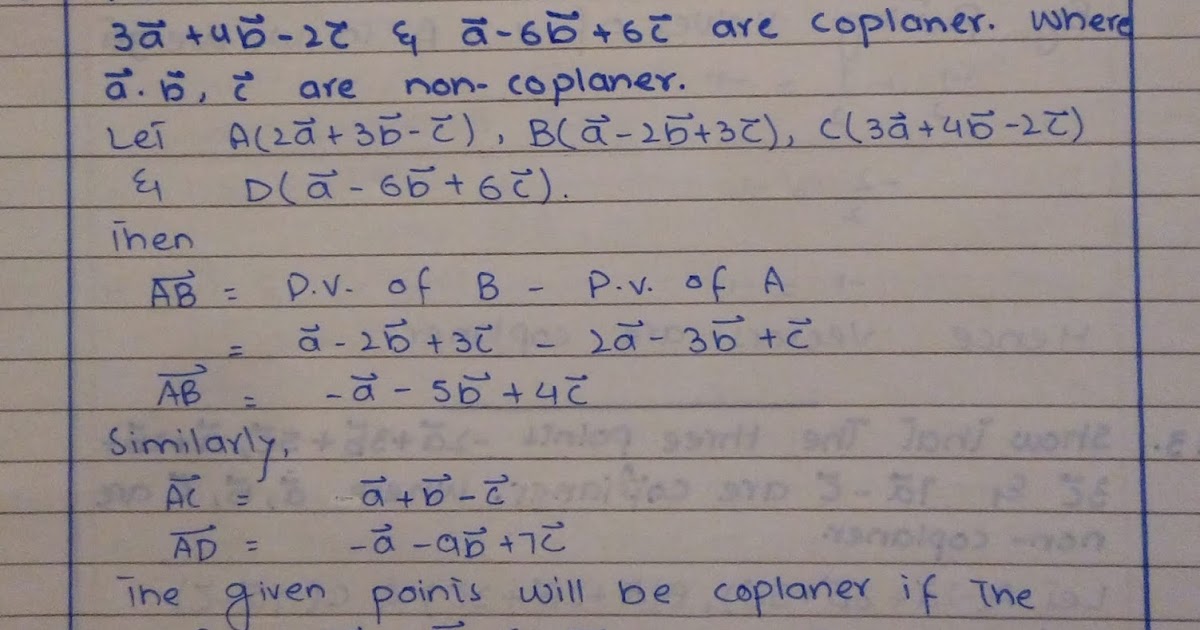 3a⃗ + 4b⃗ - 2c⃗ & a⃗ - 6b⃗ + 6c⃗ are coplaner. Where
a⃗. b⃗, c⃗ are non-coplaner.
Let A(2a⃗ + 3b⃗ - c⃗), B(a⃗ - 2b⃗ + 3c⃗), C(3a⃗ + 4b⃗ - 2c⃗)
& D(a⃗ - 6b⃗ + 6c⃗).
Then
AB⃗ = P.V. of B - P.V. of A
= a⃗ - 2b⃗ + 3c⃗ - 2a⃗ - 3b⃗ + c⃗
AB⃗ = -a⃗ - 5b⃗ + 4c⃗
Similarly,
AC⃗ = a⃗ + b⃗ - c⃗
AD⃗ = -a⃗ - 9b⃗ + 7c⃗
The given points will be coplaner if The